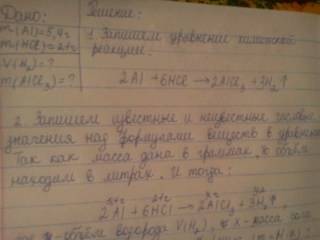 Дано:
m(Al)=5,4г
m(HCl)=2+г
V(H₂)=?
m(AlCl₃)=?
Решение:
1 Запишем уравнение химической
реакции:
2Al + 6HCl → 2AlCl₃ + 3H₂↑
2 Запишем известные и неизвестные числовые
значения над формулами веществ в уравнении
Так как масса дана в граммах, то объём
находим в литрах. И тогда:
2Al + 6HCl → 2AlCl₃ + 3H₂↑
объём водорода V(H₂), X-масса соли